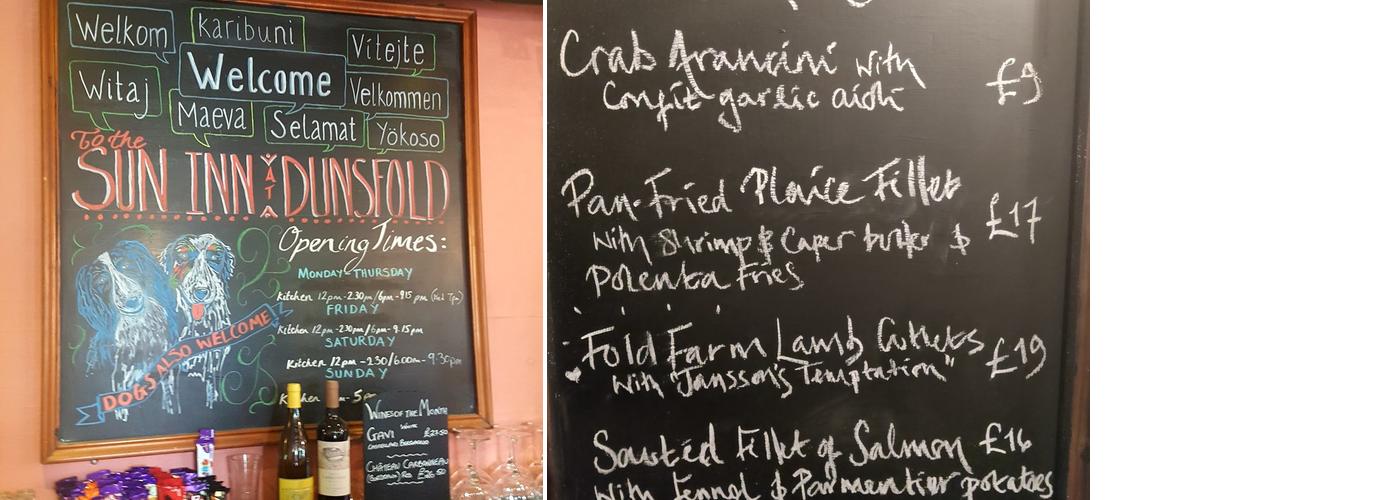 Welkom
karibuni
Vítejte
Welcome
Witaj
Velkommen
Maeva
Selamat
Yōkoso
To the
SUN INN AT DUNSFOLD
Opening Times:
MONDAY-THURSDAY
Kitchen 12pm-2.30pm/6pm-9.15pm
FRIDAY
Kitchen 12pm-2.30pm/6pm-9.15pm
SATURDAY
Kitchen 12pm-2.30/6.00pm-9.30pm
SUNDAY
DOGS ALSO WELCOME
WINES OF THE MONTH
WHITE
GAVI £27.50
CHÂTEAU CARBONNEAU
Crab Arancini with £9
Confit garlic aioli
Pan-Fried Plaice Fillet
With Shrimp & Caper butter & £17
Polenta Fries
Fold Farm Lamb Cutlets £19
With "Jansson's Temptation"
Sautéd Fillet of Salmon £16
With fennel & Parmentier potatoes